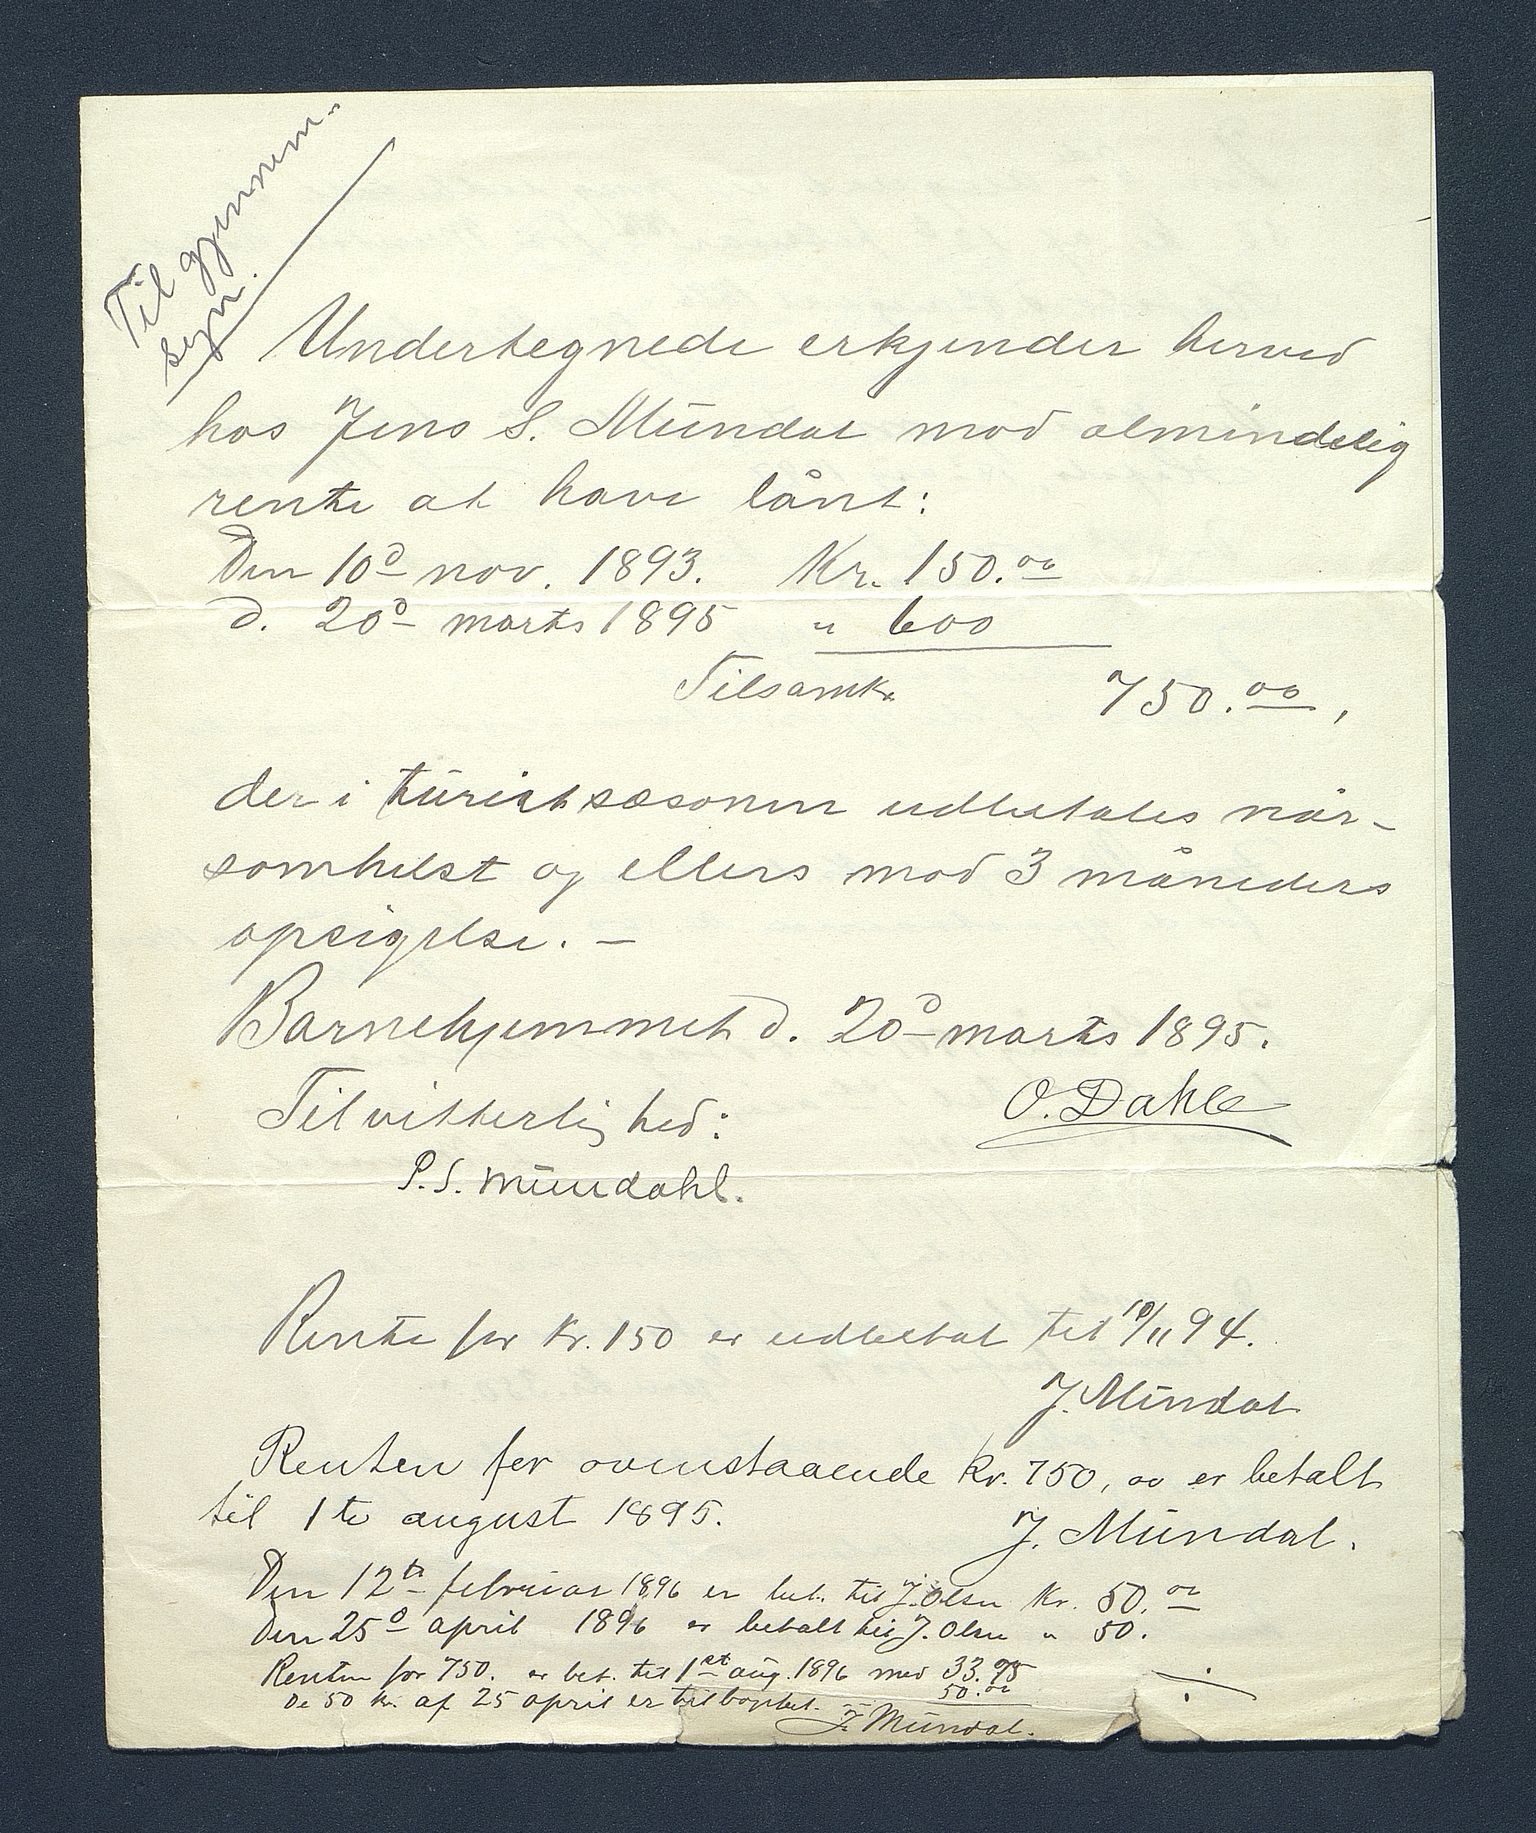 Til gjennem-
syn.
Undertegnede erkjender herved
hos Jens S. Mundal mod almindelig
rente at have lånt:
Den 10d nov. 1893. Kr. 150.00
d. 20d marts 1895 " 600
Tilsam kr 750.00,
der i turistsæsonen udbetales når-
somhelst og ellers mod 3 måneders
opsigelse. —
Barnehjemmet d. 20d marts 1895.
O. Dahle
Til vitterlighed:
P. S. Mundahl.
Rente for Kr. 150 er udbetal til 10/11 94.
J. Mundal
Renten for ovenstaaende Kr. 750,00 er betalt
til 1te august 1895.
J. Mundal.
Den 12te februar 1896 er bet. til J. Olsen Kr. 50.00
Den 25d april 1896 er betalt til J. Olsen " 50.
Renten for 750. er bet. til 1st aug. 1896 med 33.75
De 50 kr. af 25 april er tilbagebet. 50.00
J. Mundal.